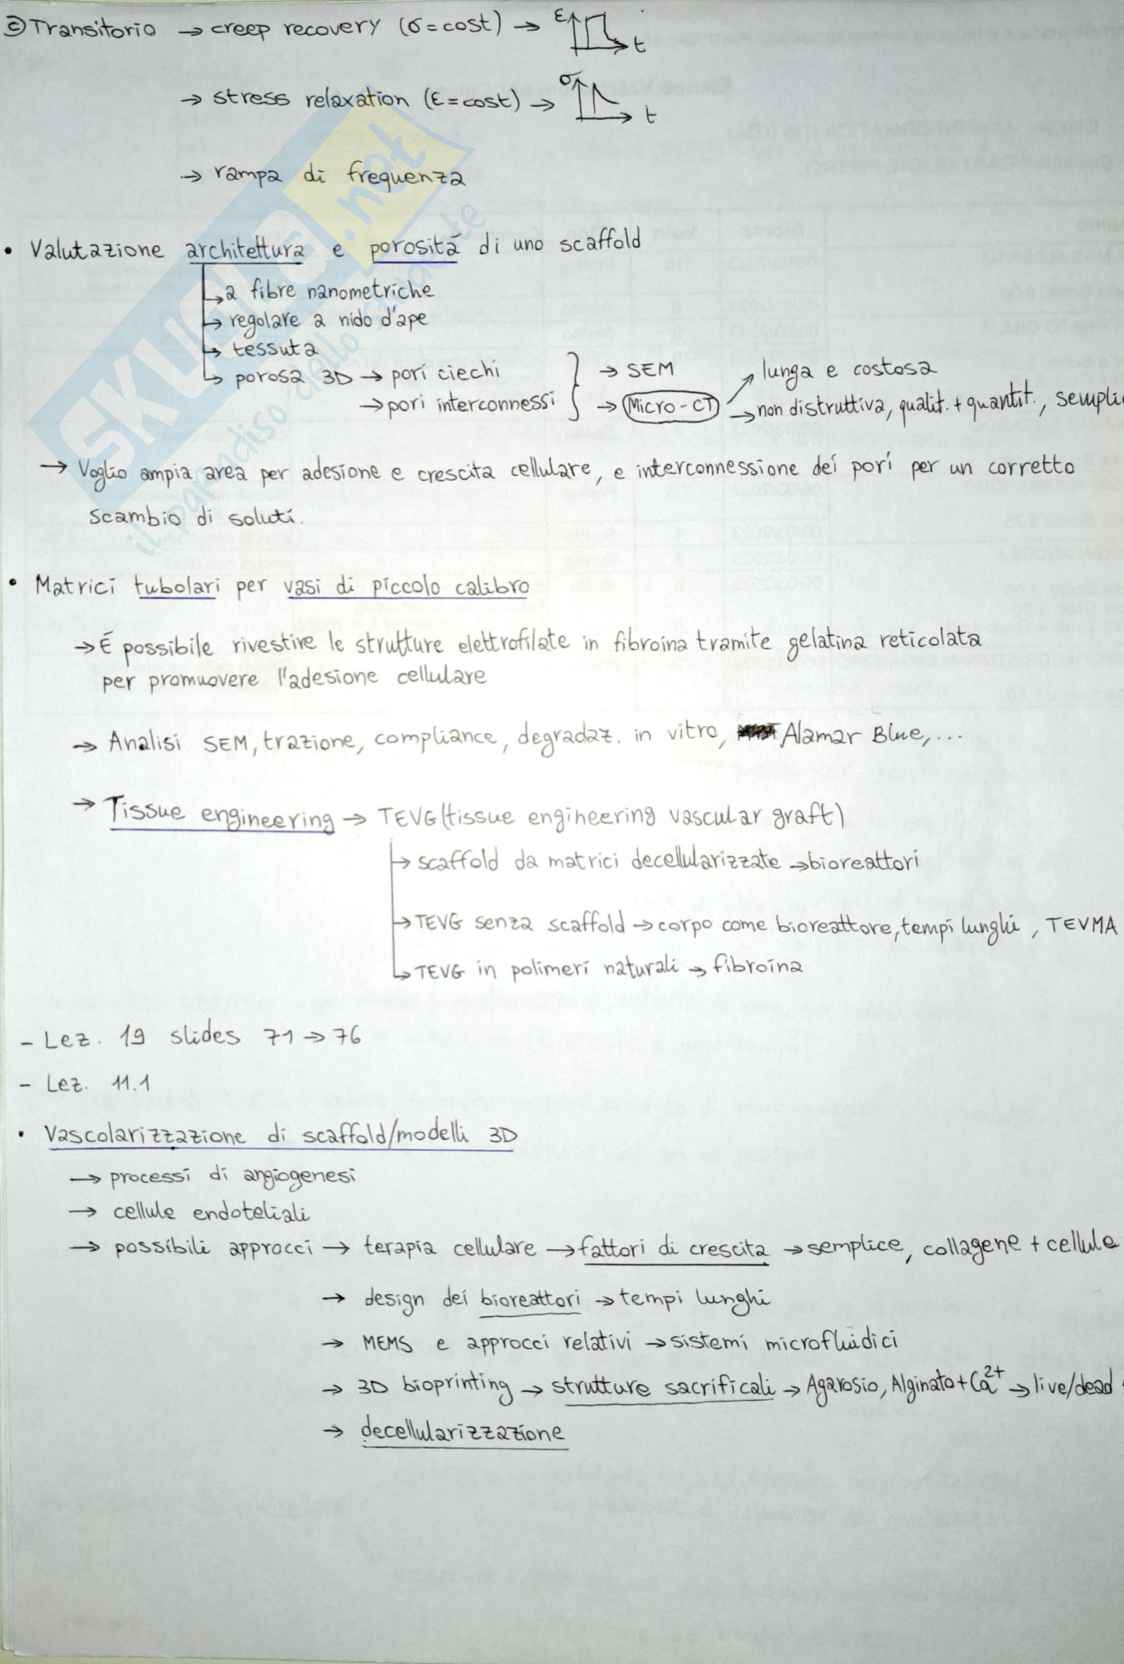 © Transitorio → creep recovery (σ = cost) → ε t
→ stress relaxation (ε = cost) → σ t
→ rampa di frequenza
• Valutazione architettura e porositá di uno scaffold
↳ a fibre nanometriche
↳ regolare a nido d'ape
↳ tessuta
↳ porosa 3D → pori ciechi → SEM lunga e costosa
→ pori interconnessi → Micro-CT → non distruttiva, qualit. + quantit., sempli
→ Voglio ampia area per adesione e crescita cellulare, e interconnessione dei pori per un corretto
scambio di soluti.
• Matrici tubolari per vasi di piccolo calibro
→ É possibile rivestire le strutture elettrofilate in fibroina tramite gelatina reticolata
per promuovere l'adesione cellulare
→ Analisi SEM, trazione, compliance, degradaz. in vitro, Alamar Blue, ...
→ Tissue engineering → TEVG (tissue engineering vascular graft)
↳ scaffold da matrici decellularizzate → bioreattori
↳ TEVG senza scaffold → corpo come bioreattore, tempi lunghi, TEVMA
↳ TEVG in polimeri naturali → fibroina
- Lez. 19 slides 71 → 76
- Lez. 11.1
• Vascolarizzazione di scaffold/modelli 3D
→ processi di angiogenesi
→ cellule endoteliali
→ possibili approcci → terapia cellulare → fattori di crescita → semplice, collagene + cellule
→ design dei bioreattori → tempi lunghi
→ MEMS e approcci relativi → sistemi microfluidici
→ 3D bioprinting → strutture sacrificali → Agarosio, Alginato + Ca²⁺ → live/dead
→ decellularizzazione
SKUOLA.net
il paradiso dello studente